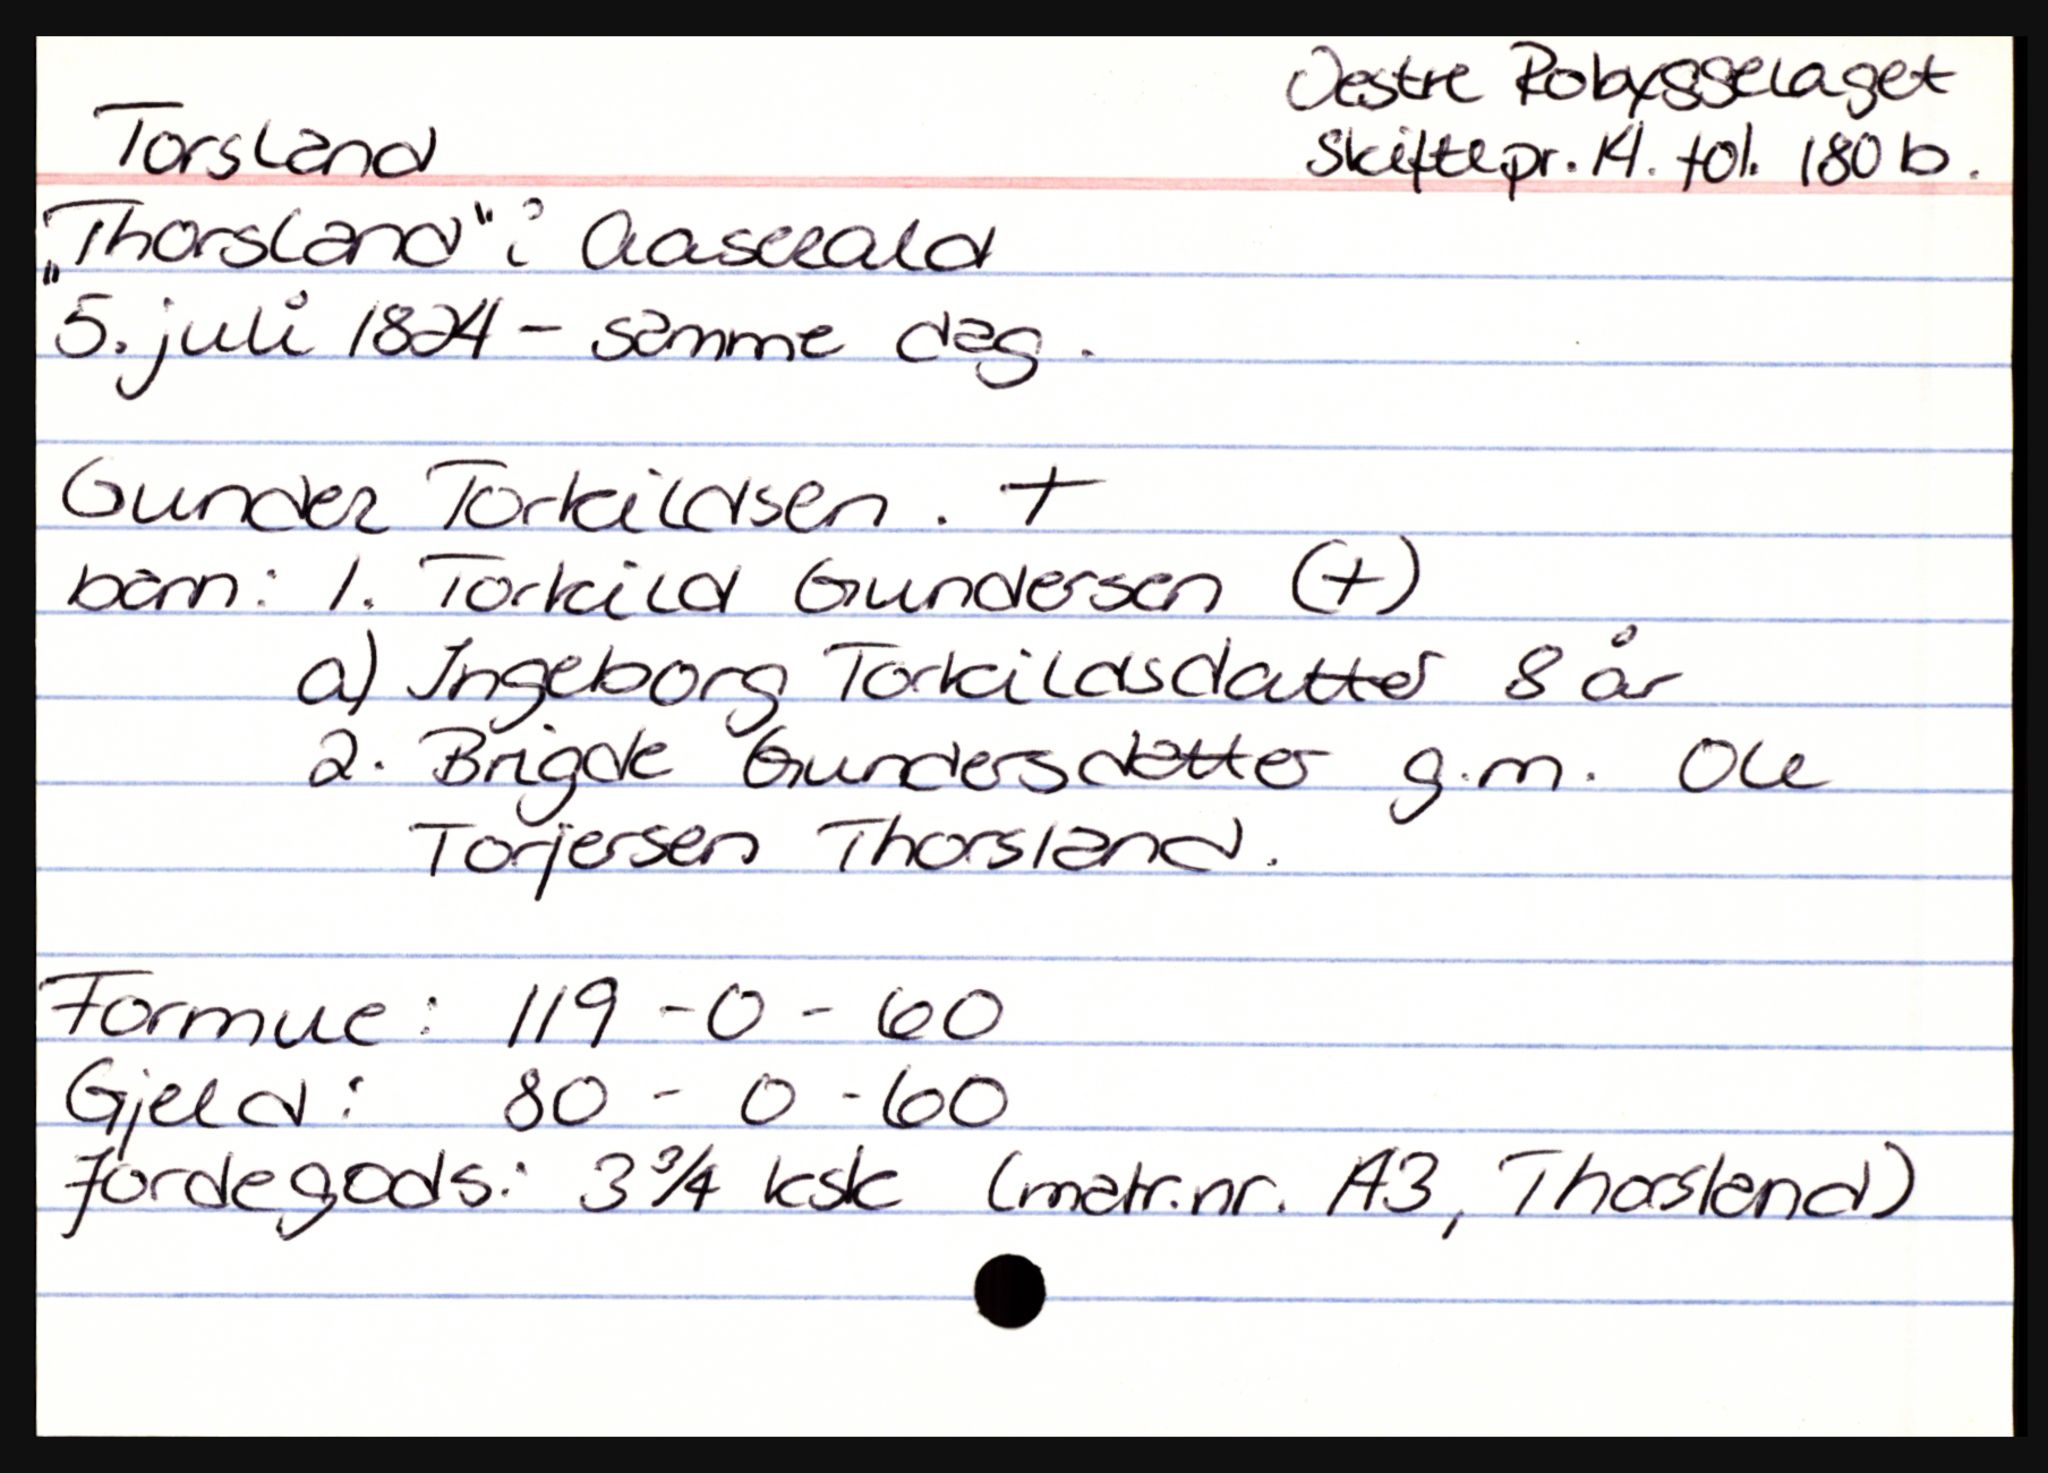 Vestre Robyggelaget
Torsland
Skiftepr. 14. fol. 180 b.
„Thorsland" i Aaserald
5. juli 1824 - samme dag.
Gunder Torkildsen. +
barn: 1. Torkild Gundersen (+)
a) Ingeborg Torkildsdatter 8 år
2. Brigde Gundersdatter g.m. Ole
Torjersen Thorsland.
Formue: 119 - 0 - 60
Gjeld: 80 - 0 - 60
Jordegods: 3 3/4 ksk (matr.nr. A3, Thorsland)